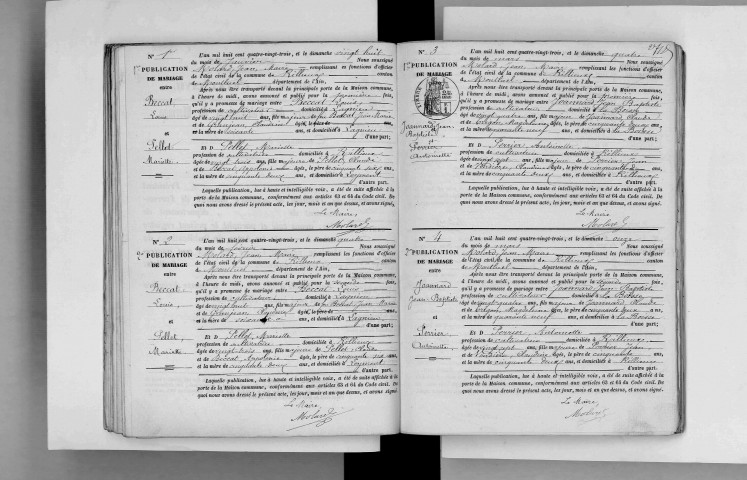 N° 1
1re PUBLICATION
DE MARIAGE
entre
Beccat
Louis
et
Pellot
Mariette
L'an mil huit cent quatre-vingt-trois, et le dimanche vingt huit
du mois de Janvier Nous soussigné
Molard Jean Marie remplissant les fonctions d'officier
de l'état civil de la commune de Rillieux canton
de Montluel département de l'Ain,
Après nous être transporté devant la principale porte de la Maison commune,
à l'heure de midi, avons annoncé et publié pour la première fois,
qu'il y a promesse de mariage entre Beccat Louis
profession de cultivateur domicilié à
ans, fils majeur de Beccat Jean Marie
et la mère de soixante ans, et domiciliés à Lagnieu
d'une part;
Et D Pellot Mariette
profession de domiciliée à Rillieux
âgée de vingt trois ans, fille majeure de Pellot Claude
et de âgés, le père de cinquante six ans,
et la mère de cinquante deux ans, et domiciliés à
d'autre part;
Laquelle publication, lue à haute et intelligible voix, a été de suite affichée à la
porte de la Maison commune, conformément aux articles 63 et 64 du Code civil. De
quoi nous avons dressé le présent acte, les jour, mois et an que dessus, et avons signé.
Le Maire,
Molard
N° 2
2e PUBLICATION
DE MARIAGE
entre
Beccat
Louis
et
Pellot
Mariette
L'an mil huit cent quatre-vingt-trois, et le dimanche quatre
du mois de février Nous soussigné
Molard Jean Marie remplissant les fonctions d'officier
de l'état civil de la commune de Rillieux canton
de Montluel département de l'Ain,
Après nous être transporté devant la principale porte de la Maison commune,
à l'heure de midi, avons annoncé et publié pour la seconde fois,
qu'il y a promesse de mariage entre Beccat Louis
profession de cultivateur domicilié à
ans, fils majeur de Beccat Jean Marie
et la mère de soixante ans, et domiciliés à Lagnieu
d'une part;
Et D Pellot Mariette
profession de domiciliée à Rillieux
âgée de vingt trois ans, fille majeure de Pellot Claude
et de âgés, le père de cinquante six ans,
et la mère de cinquante deux ans, et domiciliés à
d'autre part;
Laquelle publication, lue à haute et intelligible voix, a été de suite affichée à la
porte de la Maison commune, conformément aux articles 63 et 64 du Code civil. De
quoi nous avons dressé le présent acte, les jour, mois et an que dessus, et avons signé.
Le Maire,
Molard
N° 3
1re PUBLICATION
DE MARIAGE
Jeannard Jean
Baptiste
et
Perrier
Antoinette
L'an mil huit cent quatre-vingt-trois, et le dimanche quatre
du mois de mars Nous soussigné
Molard Jean Marie remplissant les fonctions d'officier
de l'état civil de la commune de Rillieux canton
de Montluel département de l'Ain,
Après nous être transporté devant la principale porte de la Maison commune,
à l'heure de midi, avons annoncé et publié pour la première fois,
qu'il y a promesse de mariage entre Jeannard Jean Baptiste
profession de cultivateur domicilié à La Boisse
âgé de vingt quatre ans, fils majeur de Jeannard Claude
et de Magdeleine âgés, le père de cinquante deux ans,
et la mère de quarante neuf ans, et domiciliés à La Boisse
d'une part;
Et D Perrier Antoinette
profession de cultivatrice domiciliée à Rillieux
âgée de vingt sept ans, fille majeure de Perrier Jean
et de âgés, le père de cinquante ans,
et la mère de cinquante deux ans, et domiciliés à Rillieux
d'autre part;
Laquelle publication, lue à haute et intelligible voix, a été de suite affichée à la
porte de la Maison commune, conformément aux articles 63 et 64 du Code civil. De
quoi nous avons dressé le présent acte, les jour, mois et an que dessus, et avons signé.
Le Maire,
Molard
N° 4
2e PUBLICATION
DE MARIAGE
entre
Jeannard
Jean Baptiste
et
Perrier
Antoinette
L'an mil huit cent quatre-vingt-trois, et le dimanche onze
du mois de mars Nous soussigné
Molard Jean Marie remplissant les fonctions d'officier
de l'état civil de la commune de Rillieux canton
de Montluel département de l'Ain,
Après nous être transporté devant la principale porte de la Maison commune,
à l'heure de midi, avons annoncé et publié pour la seconde fois,
qu'il y a promesse de mariage entre Jeannard Jean Baptiste
profession de cultivateur domicilié à La Boisse
âgé de vingt quatre ans, fils majeur de Jeannard Claude
et de Magdeleine âgés, le père de cinquante deux ans,
et la mère de quarante neuf ans, et domiciliés à La Boisse
d'une part;
Et D Perrier Antoinette
profession de cultivatrice domiciliée à Rillieux
âgée de vingt sept ans, fille majeure de Perrier Jean
et de âgés, le père de cinquante ans,
et la mère de cinquante deux ans, et domiciliés à Rillieux
d'autre part;
Laquelle publication, lue à haute et intelligible voix, a été de suite affichée à la
porte de la Maison commune, conformément aux articles 63 et 64 du Code civil. De
quoi nous avons dressé le présent acte, les jour, mois et an que dessus, et avons signé.
Le Maire,
Molard